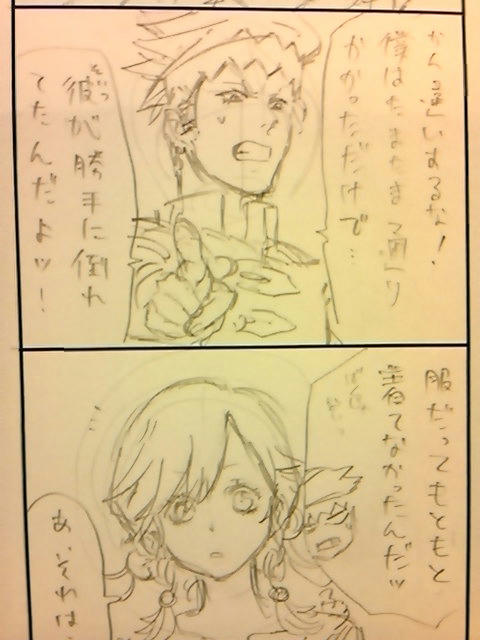 かん違いするな!
僕はたまたま通り
かかっただけで…
彼が勝手に倒れ
てたんだよッ!
服だってもともと
着てなかったんだッ
あ、それは…